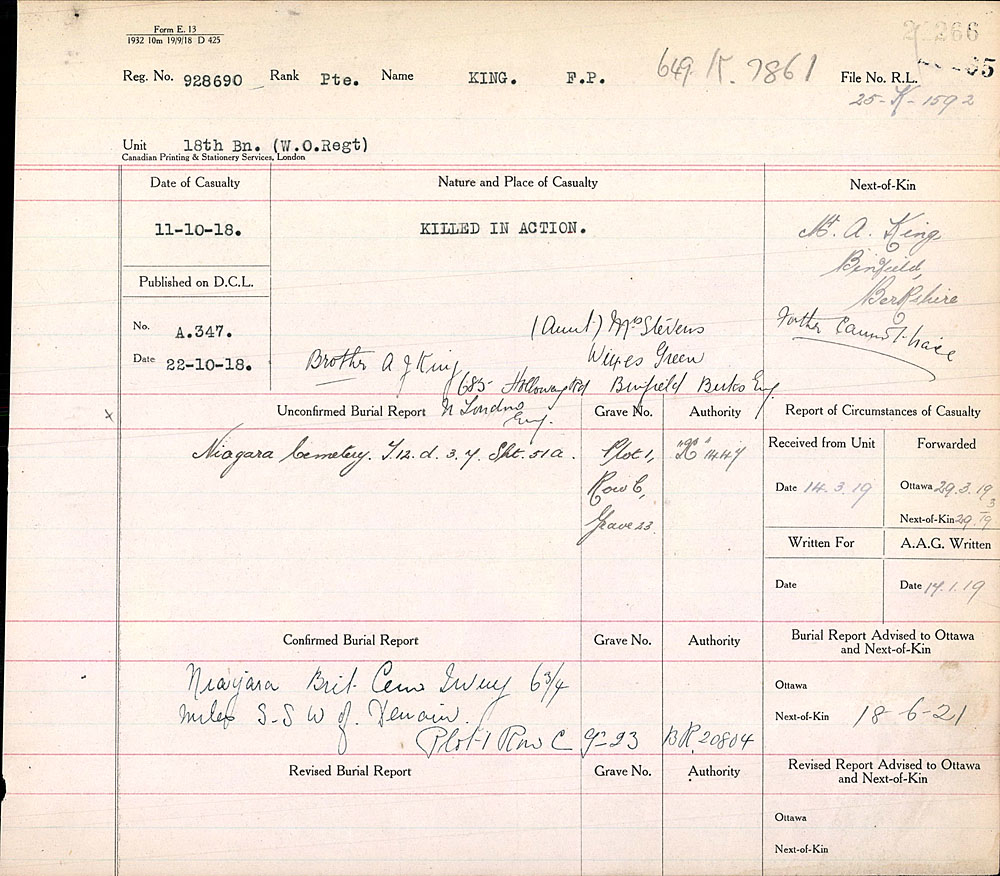 Form E. 13
1932 10m 19/9/18 D 425
266
Reg. No. 928690 Rank Pte. Name KING. F.P. 649-K-7861 File No. R.L.
25-K-1592
Unit 18th Bn. (W.O.Regt)
Canadian Printing & Stationery Services, London
Date of Casualty Nature and Place of Casualty Next-of-Kin
11-10-18. KILLED IN ACTION. Mr. A. King
Binfield,
Berkshire
Published on D.C.L.
No. A.347. (Aunt) Mrs Stevens Father
Date 22-10-18. Brother A J King Wixes Green
685 Holloway Rd Binfield Berks Eng
N London
Eng.
Unconfirmed Burial Report Grave No. Authority Report of Circumstances of Casualty
Received from Unit Forwarded
Niagara Cemetery. T.12.d.3.7. Sht. 51a. Plot 1, "R" 1447
Row C,
Grave 23.
Date 14.3.19 Ottawa 29.3.19
Next-of-Kin 29.3.19
Written For A.A.G. Written
Date Date 17.1.19
Confirmed Burial Report Grave No. Authority Burial Report Advised to Ottawa
and Next-of-Kin
Niagara Brit. Cem Iwuy 6 3/4
miles S-S W of Denain.
Plot-1 Row C G-23 BR 20804
Ottawa
Next-of-Kin 18-6-21
Revised Burial Report Grave No. Authority Revised Report Advised to Ottawa
and Next-of-Kin
Ottawa
Next-of-Kin